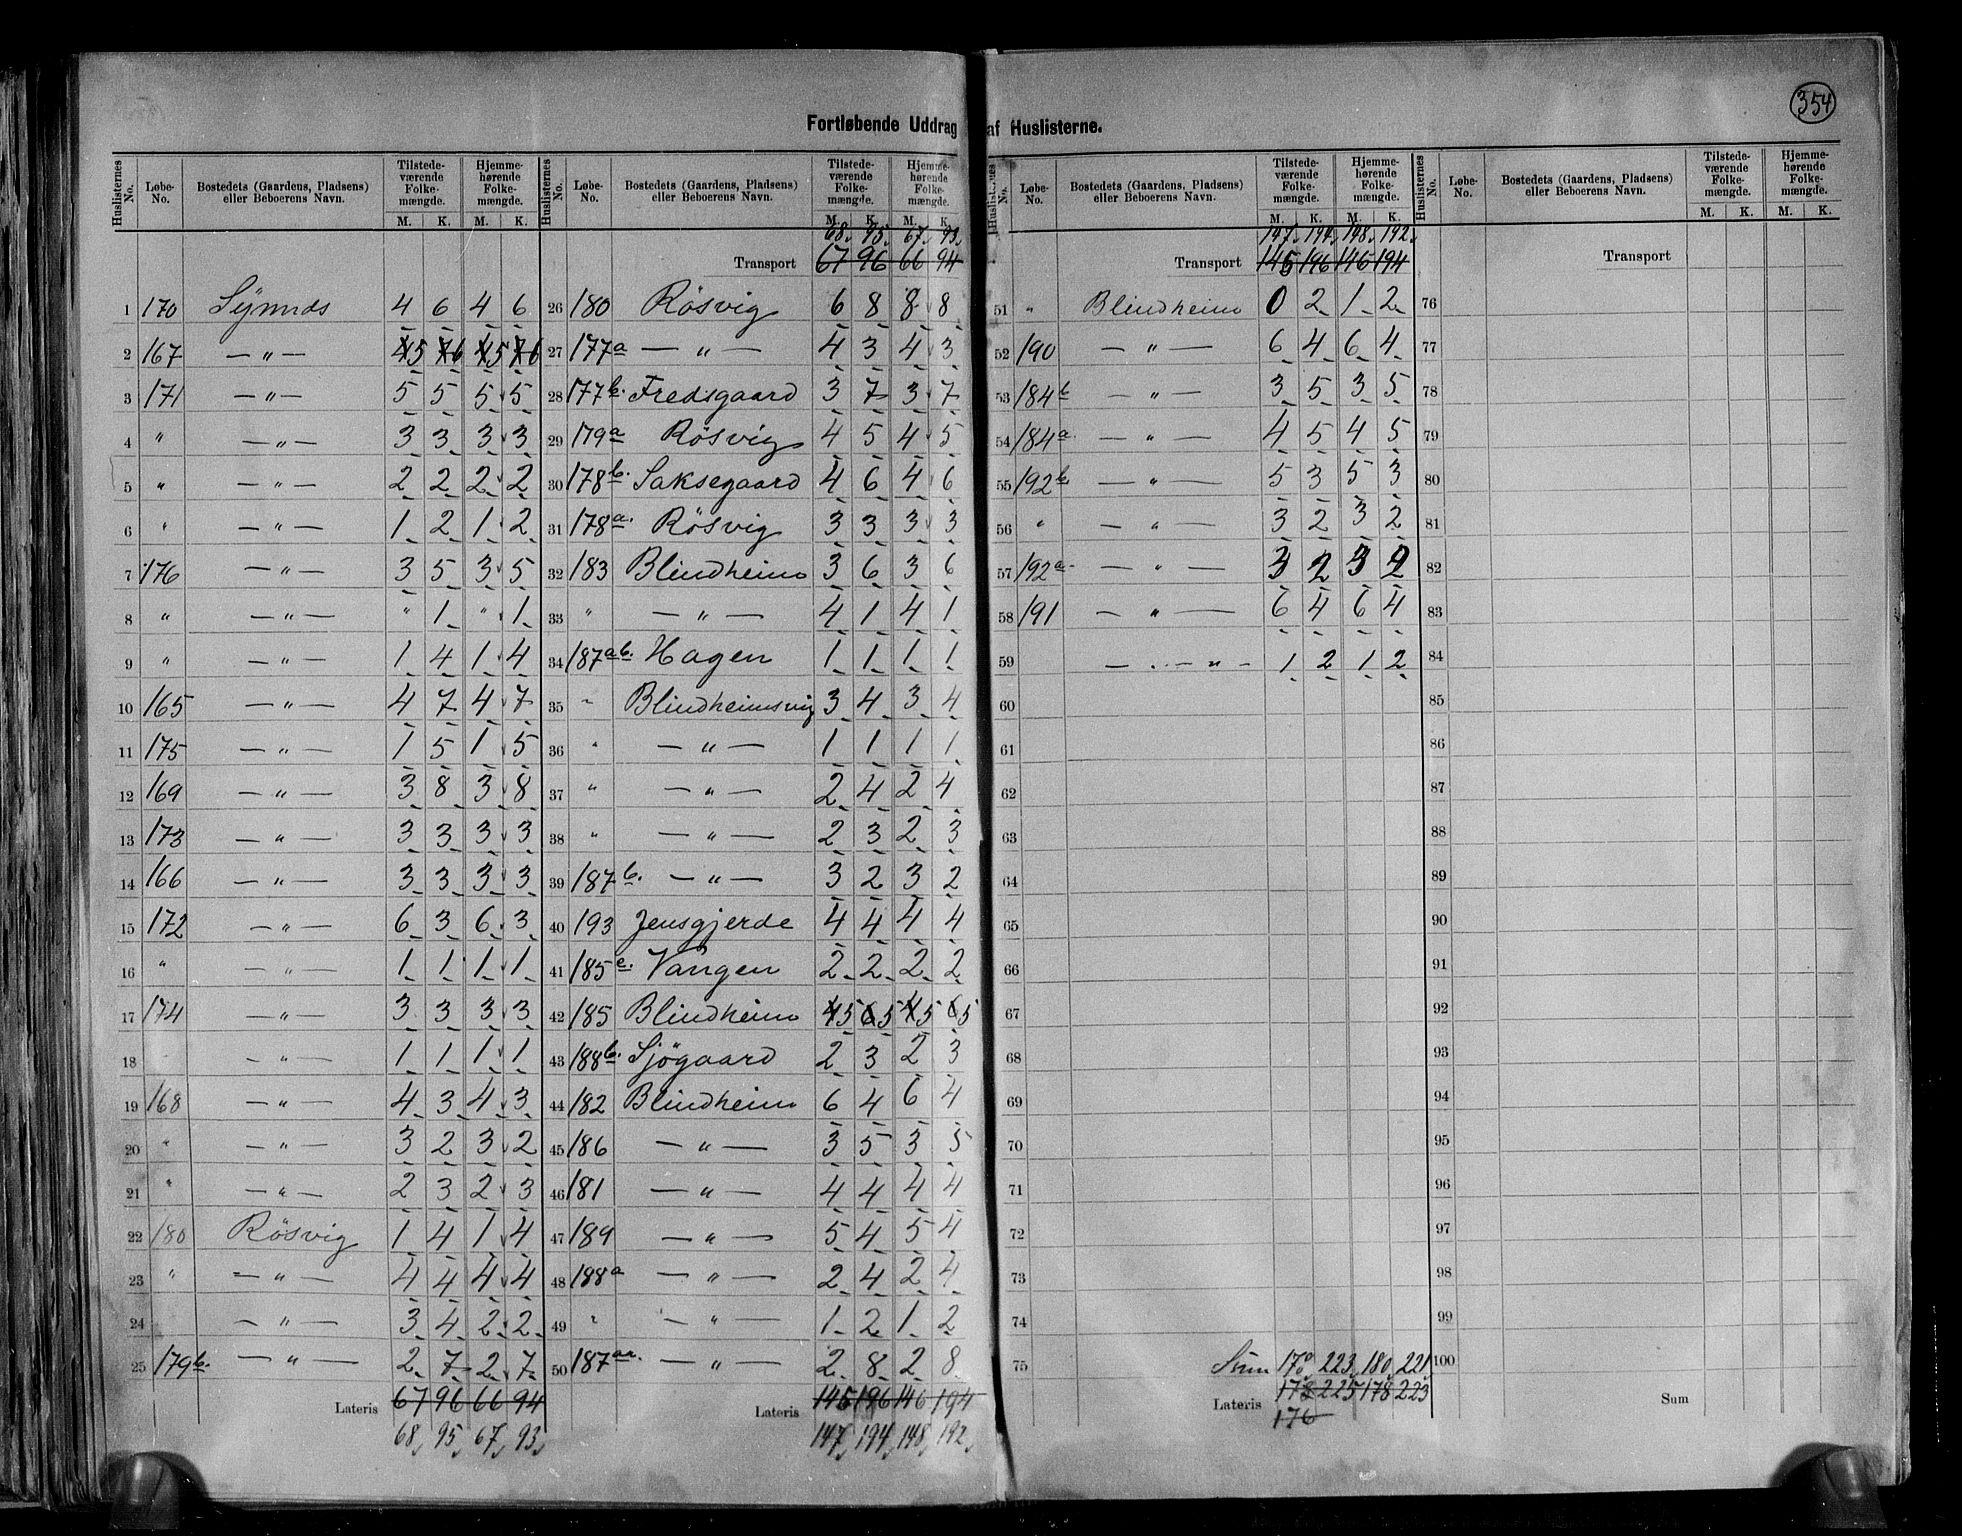 354
Fortløbende Uddrag af Huslisterne.
Huslisternes No. Løbe-No. Bostedets (Gaardens, Pladsens) eller Beboerens Navn. Tilstedeværende Folkemængde. M. K. Hjemmehørende Folkemængde. M. K.
1 170 Synnds 4 6 4 6
2 167 — " — 5 6 5 6
3 171 — " — 5 5 5 5
4 " — " — 3 3 3 3
5 " — " — 2 2 2 2
6 " — " — 1 2 1 2
7 176 — " — 3 5 3 5
8 " — " — " 1 " 1
9 " — " — 1 4 1 4
10 165 — " — 4 7 4 7
11 175 — " — 1 5 1 5
12 169 — " — 3 8 3 8
13 173 — " — 3 3 3 3
14 166 — " — 3 3 3 3
15 172 — " — 6 3 6 3
16 " — " — 1 1 1 1
17 174 — " — 3 3 3 3
18 — " — 1 1 1 1
19 168 — " — 4 3 4 3
20 " — " — 3 2 3 2
21 " — " — 2 3 2 3
22 180 Rösvig 1 4 1 4
23 " — " — 4 4 4 4
24 — " — 3 4 2 2
25 179b. — " — 2 7 2 7
Lateris 67 96 66 94
68 95 67 93
Huslisternes No. Løbe-No. Bostedets (Gaardens, Pladsens) eller Beboerens Navn. Tilstedeværende Folkemængde. M. K. Hjemmehørende Folkemængde. M. K.
68 95 67 93
Transport 67 96 66 94
26 180 Rösvig 6 8 8 8
27 177a — " — 4 3 4 3
28 177b. Fredsgaard 3 7 3 7
29 179a Rösvig 4 5 4 5
30 178b. Saksegaard 4 6 4 6
31 178a. Rösvig 3 3 3 3
32 183 Blindheim 3 6 3 6
33 " — " — 4 1 4 1
34 187ab. Hagen 1 1 1 1
35 " Blindheimsvig 3 4 3 4
36 " — " — 1 1 1 1
37 " — " — 2 4 2 4
38 " — " — 2 3 2 3
39 187b. — " — 3 2 3 2
40 193 Jensgjerde 4 4 4 4
41 185c. Vangen 2 2 2 2
42 185 Blindheim 5 5 5 5
43 188b. Sjögaard 2 3 2 3
44 182 Blindheim 6 4 6 4
45 186 — " — 3 5 3 5
46 181 — " — 4 4 4 4
47 189 — " — 5 4 5 4
48 188a — " — 2 4 2 4
49 " — " — 1 2 1 2
50 187aa. — " — 2 8 2 8
Lateris 145 196 146 194
147 194 148 192
Huslisternes No. Løbe-No. Bostedets (Gaardens, Pladsens) eller Beboerens Navn. Tilstedeværende Folkemængde. M. K. Hjemmehørende Folkemængde. M. K.
147 194 148 192
Transport 145 196 146 194
51 " Blindheim 0 2 1 2
52 190 — " — 6 4 6 4
53 184b — " — 3 5 3 5
54 184a. — " — 4 5 4 5
55 192b. — " — 5 3 5 3
56 " — " — 3 2 3 2
57 192a. — " — 3 2 3 2
58 191 — " — 6 4 6 4
59 — " — 1 2 1 2
60
61
62
63
64
65
66
67
68
69
70
71
72
73
74
75 Sum 223 180 221
Lateris 178 225 178 223
176
Huslisternes No. Løbe-No. Bostedets (Gaardens, Pladsens) eller Beboerens Navn. Tilstedeværende Folkemængde. M. K. Hjemmehørende Folkemængde. M. K.
Transport
76
77
78
79
80
81
82
83
84
85
86
87
88
89
90
91
92
93
94
95
96
97
98
99
100
Sum